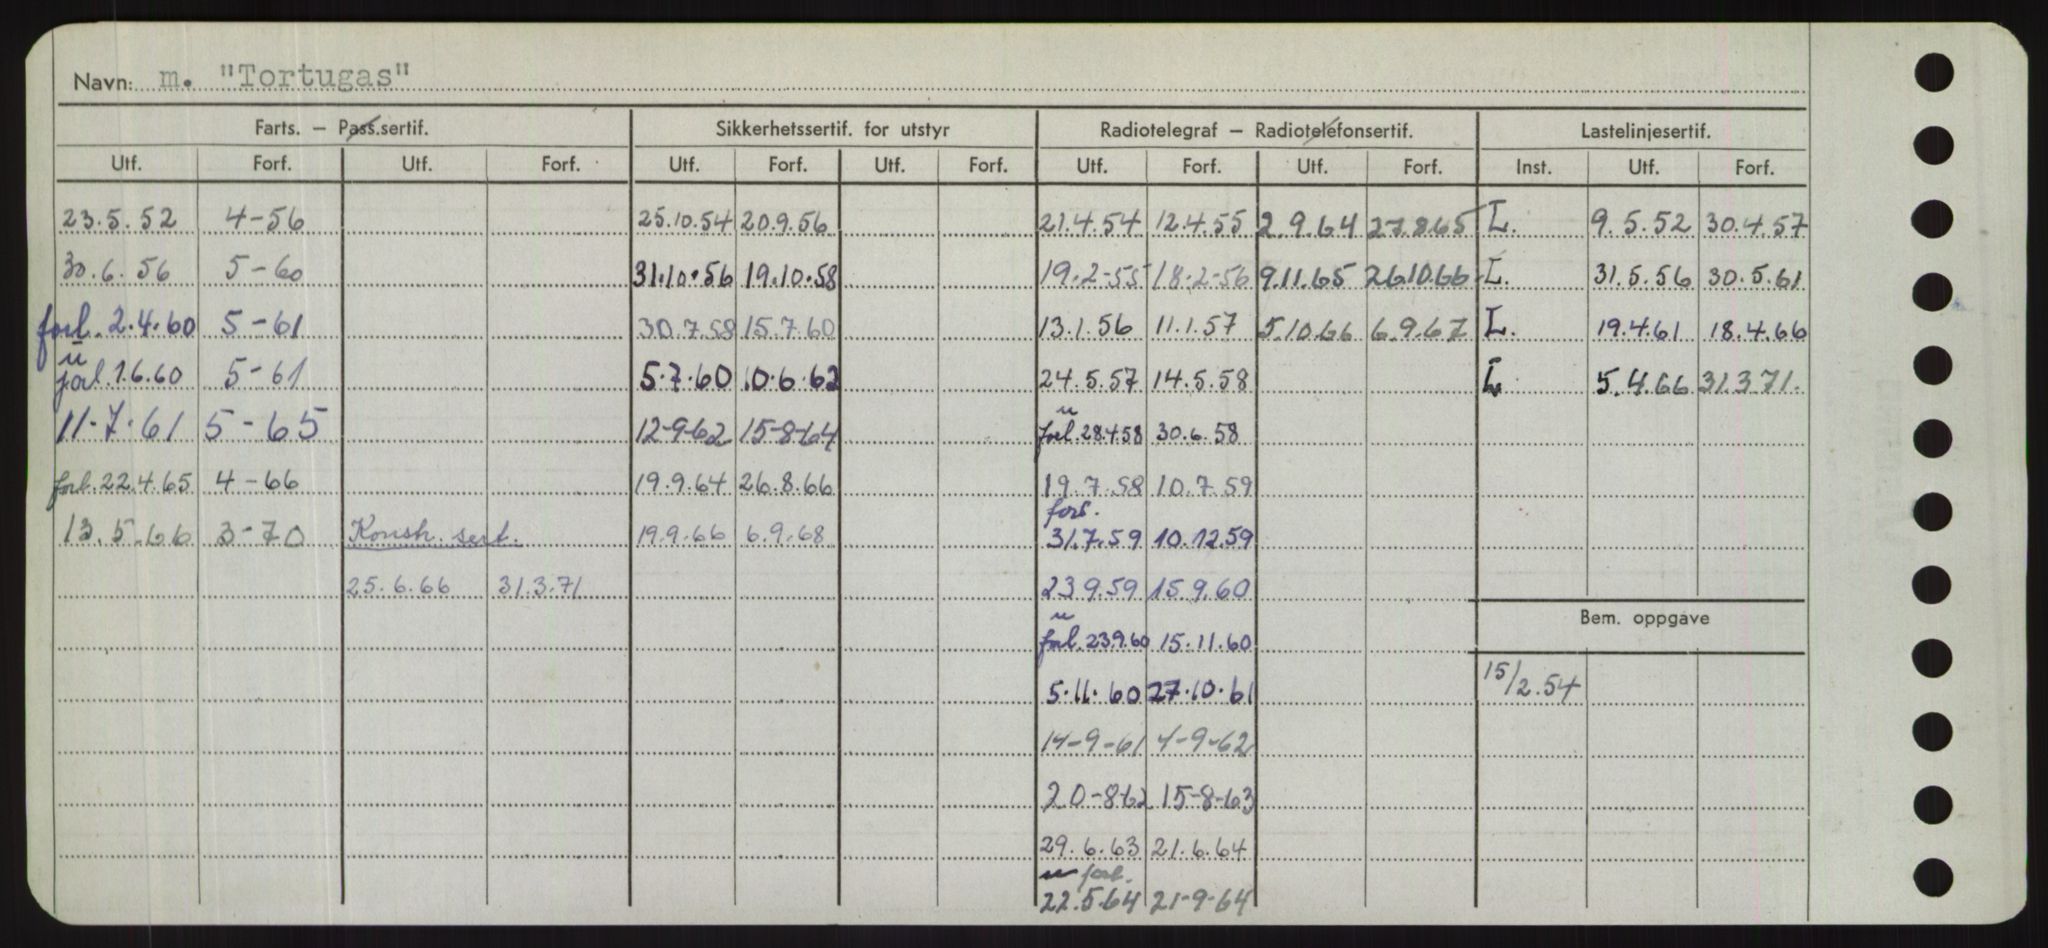 Navn: m. "Tortugas"
Farts. – Pass.sertif. Sikkerhetssertif. for utstyr Radiotelegraf – Radiotelefonsertif. Lastelinjesertif.
Utf. Forf. Utf. Forf. Utf. Forf. Utf. Forf. Utf. Forf. Utf. Forf. Inst. Utf. Forf.
23.5.52 4-56 25.10.54 20.9.56 21.4.54 12.4.55 2.9.64 27.8.65 L. 9.5.52 30.4.57
30.6.56 5-60 31.10.56 19.10.58 19.2-55 18.2-56 9.11.65 26.10.66 L. 31.5.56 30.5.61
forl. 2.4.60 5-61 30.7.58 15.7.60 13.1.56 11.1.57 5.10.66 6.9.67 L. 19.4.61 18.4.66
u
forl. 1.6.60 5-61 5.7.60 10.6.62 24.5.57 14.5.58 L 5.4.66 31.3.71.
u
11-7.61 5-65 12-9-62 15-8-64 forl. 28.4.58 30.6.58
forl. 22.4.65 4-66 19.9.64 26.8.66 19.7.58 10.7.59
forl.
13.5.66 3-70 Konstr. sert. 19.9.66 6.9.68 31.7.59 10.12.59
25.6.66 31.3.71 23.9.59 15.9.60
u
forl. 23.9.60 15.11.60
Bem. oppgave
5.11.60 27.10.61 15/2.54
14-9-61 4-9-62
20-8-62 15-8-63
29.6.63 21.6.64
u forl.
22.5.64 21-9-64